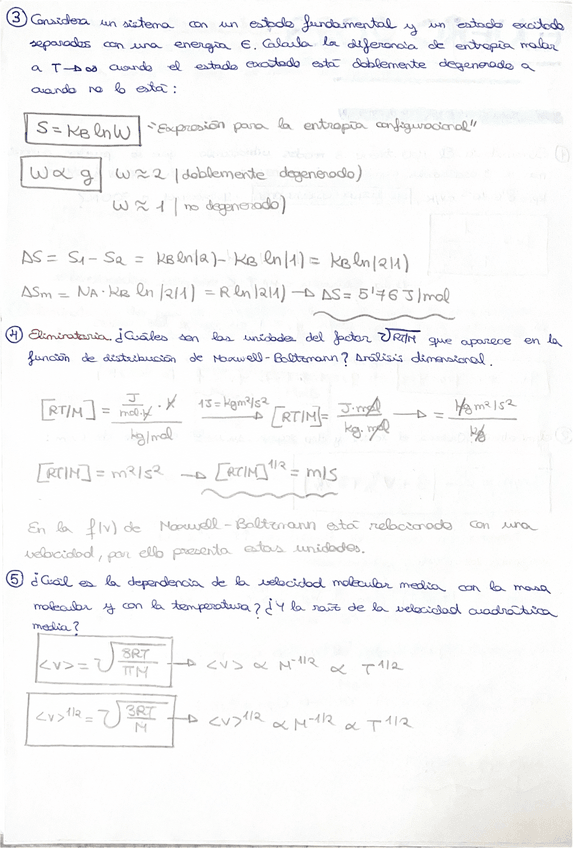 ③ Considera un sistema con un estado fundamental y un estado excitado
separados con una energía E. Calcula la diferencia de entropía molar
a T→∞ cuando el estado excitado está doblemente degenerado a
cuando no lo está:
S = KB ln W "Expresión para la entropía configuracional"
W ∝ g W ≈ 2 (doblemente degenerado)
W ≈ 1 (no degenerado)
ΔS = S1 - S2 = KB ln(2) - KB ln(1) = KB ln(2/1)
ΔSm = NA · KB ln(2/1) = R ln(2/1) → ΔS = 5'76 J/mol
④ Eliminatoria. ¿Cuáles son las unidades del factor √RT/M que aparece en la
función de distribución de Maxwell-Boltzmann? Análisis dimensional.
[RT/M] = (J/mol·K · K)/(kg/mol) 1J = kgm²/s² → [RT/M] = J·mol/kg·mol → = kg m²/s²/kg
[RT/M] = m²/s² → [RT/M]^1/2 = m/s
En la f(v) de Maxwell-Boltzmann está relacionado con una
velocidad, por ello presenta estas unidades.
⑤ ¿Cuál es la dependencia de la velocidad molecular media con la masa
molecular y con la temperatura? ¿Y la raíz de la velocidad cuadrática
media?
<v> = √8RT/πM → <v> ∝ M^-1/2 ∝ T^1/2
<v>^1/2 = √3RT/M → <v>^1/2 ∝ M^-1/2 ∝ T^1/2